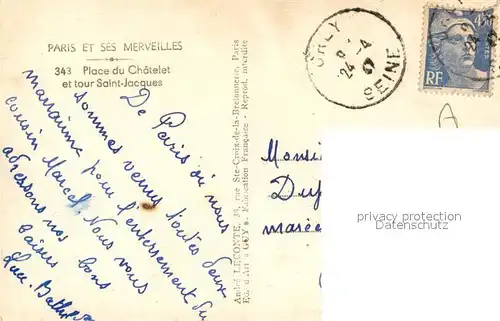 PARIS ET SES MERVEILLES
343 Place du Châtelet
et tour Saint-Jacques
De Paris où nous
sommes venus toutes deux
marraine pour l'enterrement du
cousin Marcel. Nous vous
adressons nos bons
baisers
Luce.
André LECONTE, 38, rue Ste-Croix-de-la-Bretonnerie, Paris
Fabrication Française - Reprod. interdite
ORLY
24 -4
SEINE
RF
Monsi
privacy protection
Datenschutz